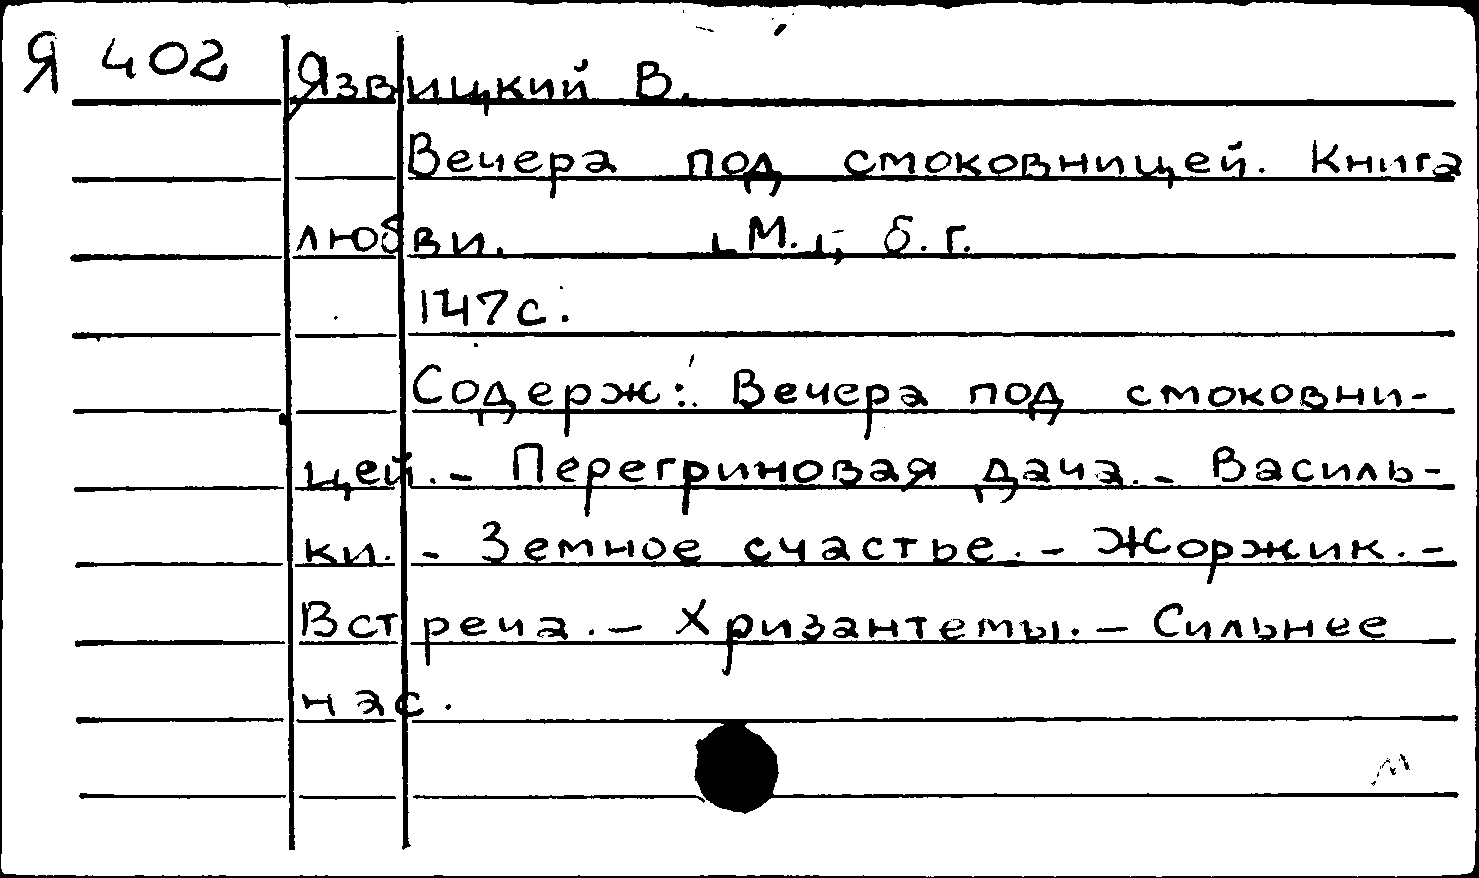 Я 402 Язвицкий В.
Вечера под смоковницей. Книга
любви. [М.], б.г.
147 с.
Содерж: Вечера под смоковни-
цей. - Перегриновая дача. - Василь-
ки. - Земное счастье. - Жоржик. -
Встреча. - Хризантемы. - Сильнее
нас.